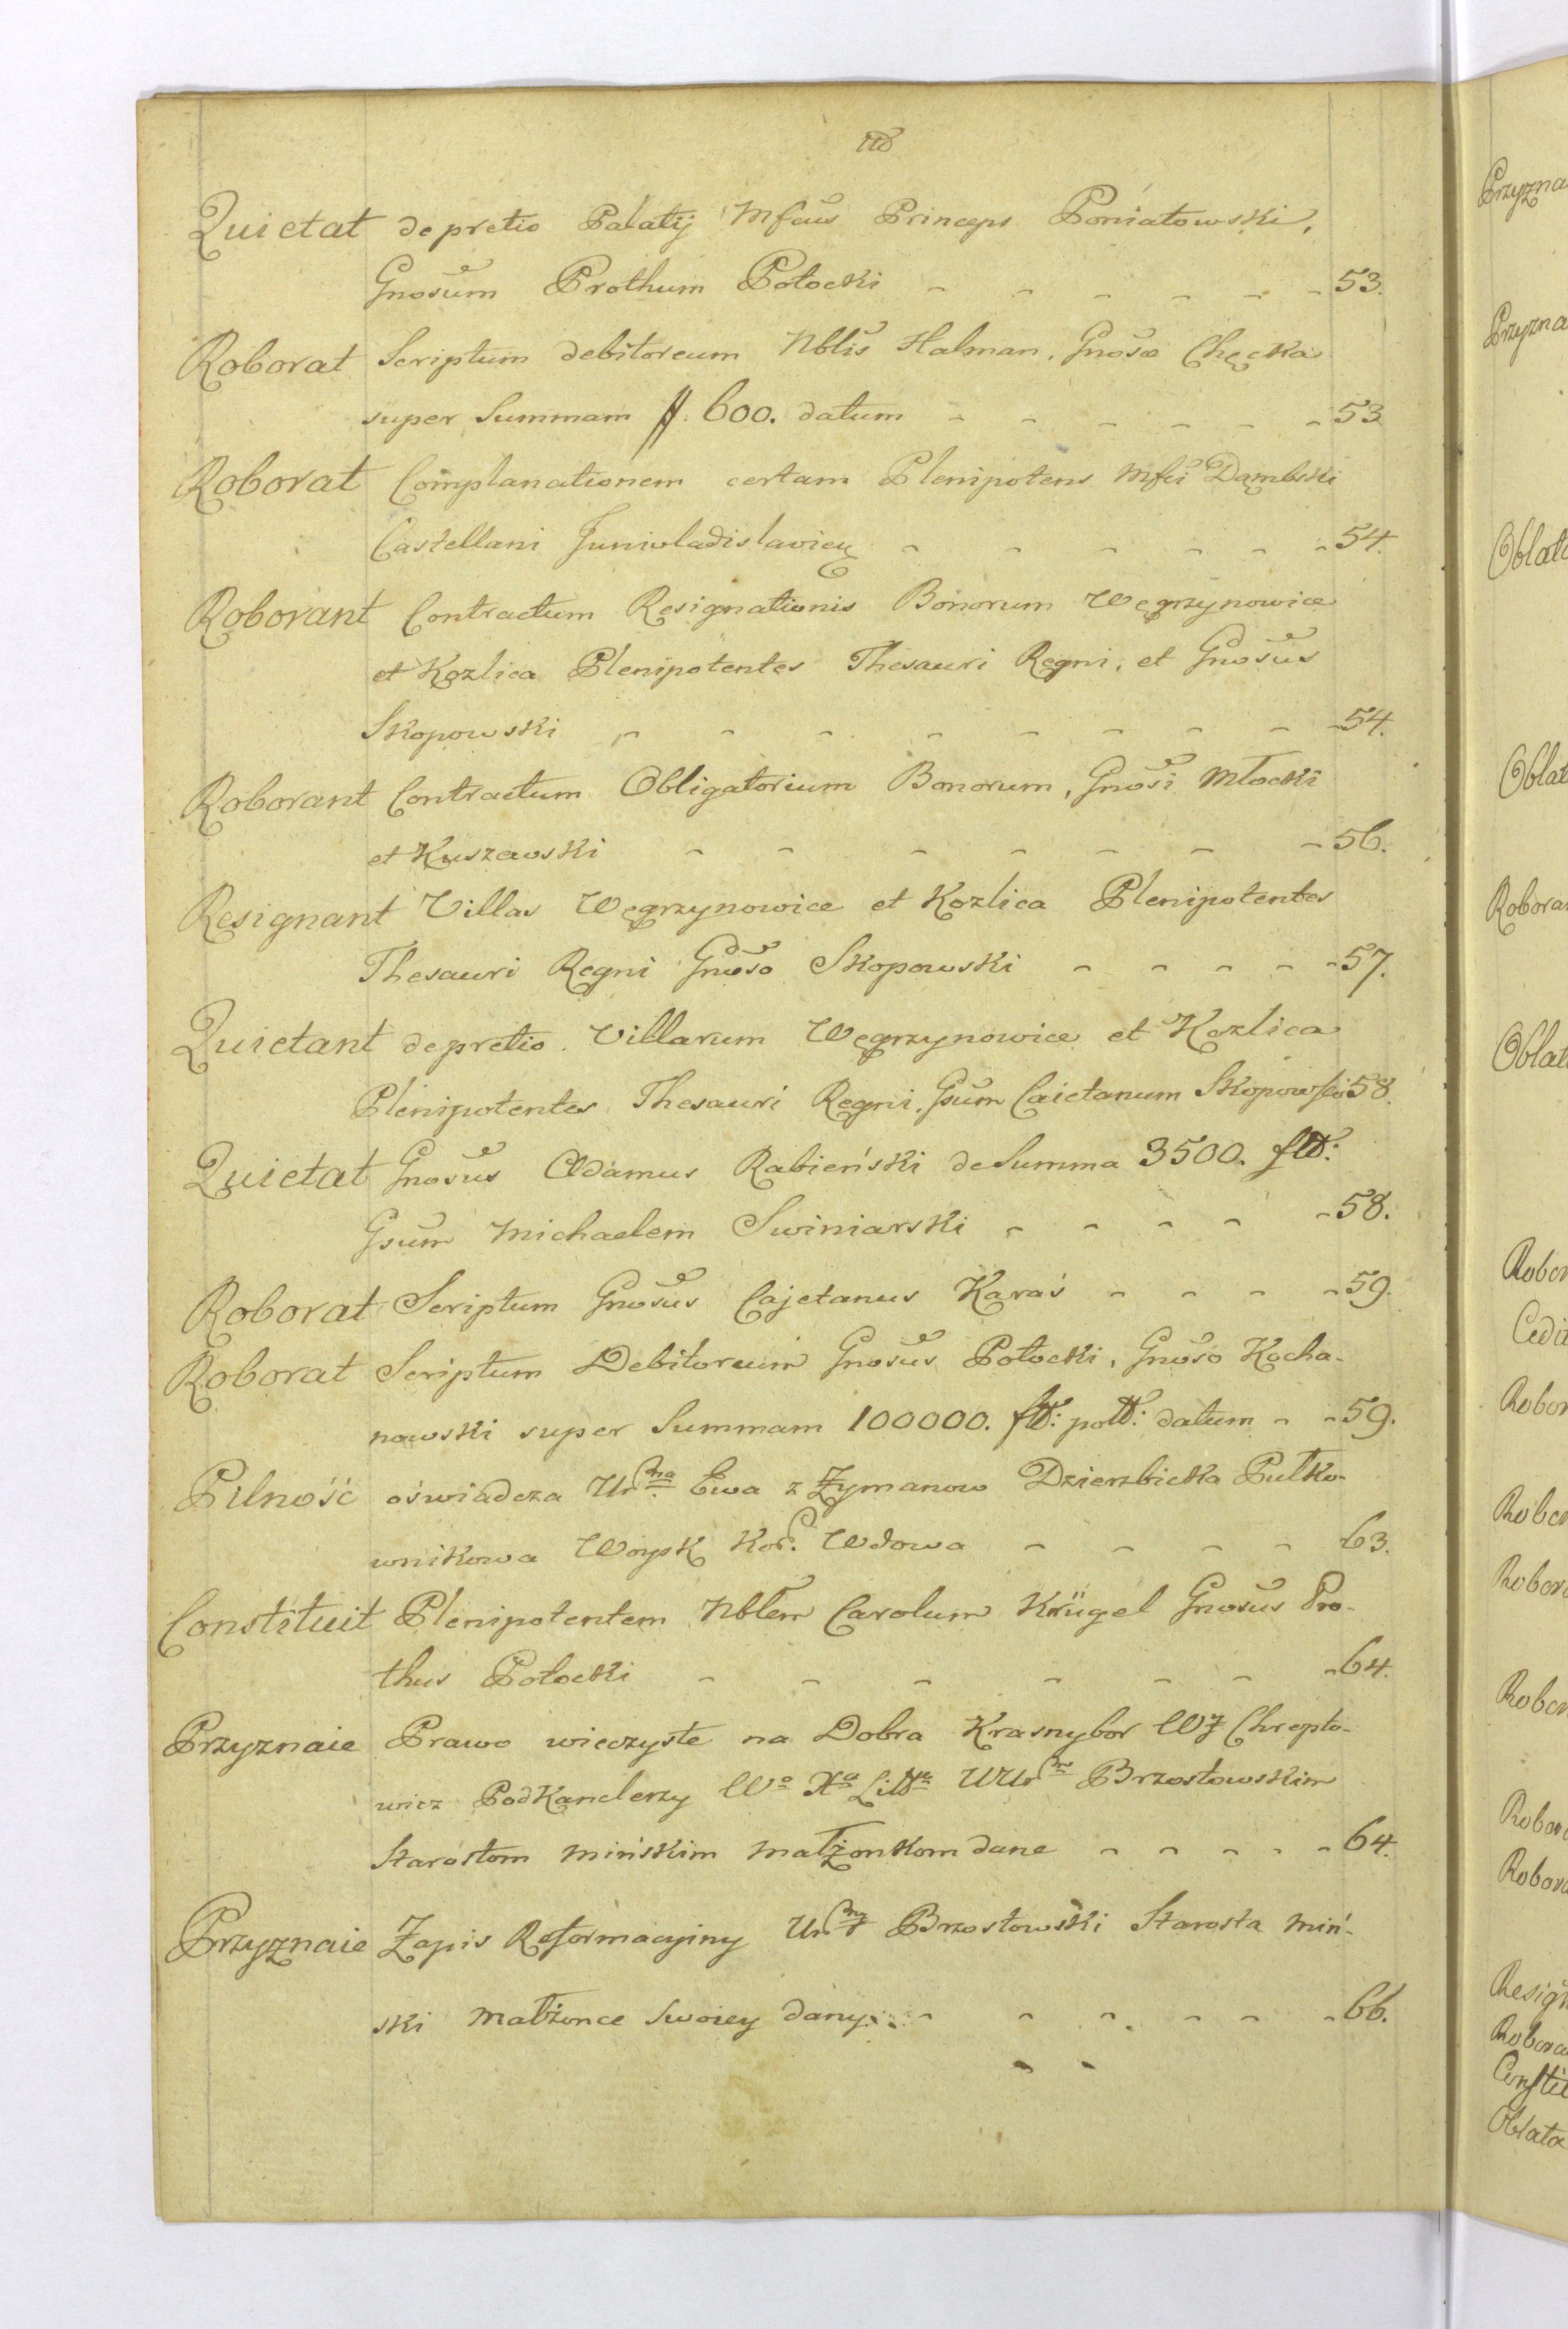 Quietat de pretio Palatij Mfcus Princeps Poniatowski,
Gnosum Prothum Potocki - - - - - - 53.
Roborat Scriptum debitoreum Nblis Halman, Gnosæ Chęcka
super Summam fl. 600. datum - - - - - 53
Roborat Complanationem certam Plenipotens Mfci Dąmbski
Castellani Juniuladislavien - - - - - - 54.
Roborant Contractum Resignationis Bonorum Węgrzynowice
et Kozlica Plenipotentes Thesauri Regni, et Gnosus
Skopowski - - - - - - - - - 54.
Roborant Contractum Obligatorium Bonorum, Gnosi Młocki
et Kuszewski - - - - - - - 56.
Resignant Villas Węgrzynowice et Kozlica Plenipotentes
Thesauri Regni Gnoso Skopowski - - - - - 57.
Quietant de pretio Villarum Węgrzynowice et Kozlica
Plenipotentes Thesauri Regni, Gsum Caietanum Skopowski 58.
Quietat Gnosus Adamus Rabieński de Summa 3500. fltt:
Gsum Michaelem Swiniarski - - - - - 58.
Roborat Scriptum Gnosus Cajetanus Karaś - - - - 59.
Roborat Scriptum Debitoreum Gnosus Potocki, Gnoso Kocha-
nowski super Summam 100000. fltt: poltt: datum - - 59.
Pilność oświadcza Urna Ewa z Zymanow Dzierzbicka Pułko-
wnikowa Woysk Kor. Wdowa - - - - 63.
Constituit Plenipotentem Nblem Carolum Krügel Gnosus Pro-
thus Potocki - - - - - - - 64.
Przyznaie Prawo wieczyste na Dobra Krasnybor WJ Chrepto-
wicz PodKanclerzy Wo Xa Litt UUr Brzostowskim
Starostom Mińskim Małżonkom dane - - - - - 64.
Przyznaie Zapis Reformacyiny Urny Brzostowski Starosta Miń-
ski Małżonce Swoiey dany - - - - - - 66.
Przyzna
Przyzna
Oblata
Oblat
Roboran
Oblat
Robor
Cedit
Robor
Robor
Robora
Robor
Robora
Robora
Resign
Robora
Constit
Oblata